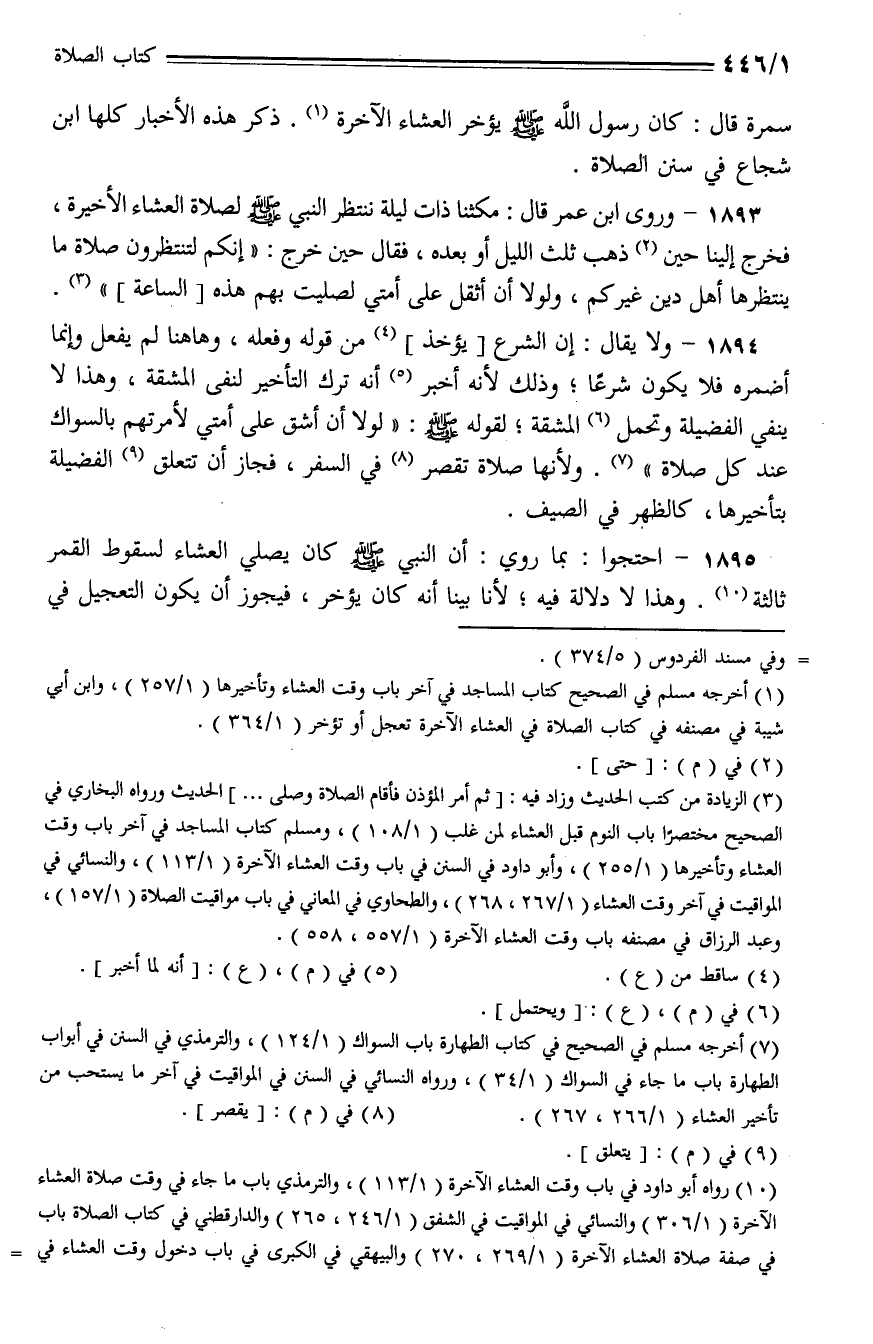 ٤٤٦/١ كتاب الصلاة
سمرة قال : كان رسول اللَّه ﷺ يؤخر العشاء الآخرة (١) . ذكر هذه الأخبار كلها ابن
شجاع في سنن الصلاة .
١٨٩٣ - وروى ابن عمر قال : مكثنا ذات ليلة ننتظر النبي ﷺ لصلاة العشاء الأخيرة ،
فخرج إلينا حين (٢) ذهب ثلث الليل أو بعده ، فقال حين خرج : « إنكم لتنتظرون صلاة ما
ينتظرها أهل دين غيركم ، ولولا أن أثقل على أمتي لصليت بهم هذه [ الساعة ] » (٣) .
١٨٩٤ - ولا يقال : إن الشرع [ يؤخذ ] (٤) من قوله وفعله ، وهاهنا لم يفعل وإنما
أضمره فلا يكون شرعًا ؛ وذلك لأنه أخبر (٥) أنه ترك التأخير لنفى المشقة ، وهذا لا
ينفي الفضيلة وتحمل (٦) المشقة ؛ لقوله ﷺ : « لولا أن أشق على أمتي لأمرتهم بالسواك
عند كل صلاة » (٧) . ولأنها صلاة تقصر (٨) في السفر ، فجاز أن تتعلق (٩) الفضيلة
بتأخيرها ، كالظهر في الصيف .
١٨٩٥ - احتجوا : بما روي : أن النبي ﷺ كان يصلي العشاء لسقوط القمر
ثالثة (١٠) . وهذا لا دلالة فيه ؛ لأنا بينا أنه كان يؤخر ، فيجوز أن يكون التعجيل في
= وفي مسند الفردوس ( ٣٧٤/٥ ) .
(١) أخرجه مسلم في الصحيح كتاب المساجد في آخر باب وقت العشاء وتأخيرها ( ٢٥٧/١ ) ، وابن أبي
شيبة في مصنفه في كتاب الصلاة في العشاء الآخرة تعجل أو تؤخر ( ٣٦٤/١ ) .
(٢) في ( م ) : [ حتى ] .
(٣) الزيادة من كتب الحديث وزاد فيه : [ ثم أمر المؤذن فأقام الصلاة وصلى ... ] الحديث ورواه البخاري في
الصحيح مختصرًا باب النوم قبل العشاء لمن غلب ( ١٠٨/١ ) ، ومسلم كتاب المساجد في آخر باب وقت
العشاء وتأخيرها ( ٢٥٥/١ ) ، وأبو داود في السنن في باب وقت العشاء الآخرة ( ١١٣/١ ) ، والنسائي في
المواقيت في آخر وقت العشاء ( ٢٦٧/١ ، ٢٦٨ ) ، والطحاوي في المعاني في باب مواقيت الصلاة ( ١٥٧/١ ) ،
وعبد الرزاق في مصنفه باب وقت العشاء الآخرة ( ٥٥٧/١ ، ٥٥٨ ) .
(٤) ساقط من ( ع ) . (٥) في ( م ) ، ( ع ) : [ أنه لما أخبر ] .
(٦) في ( م ) ، ( ع ) : [ ويحتمل ] .
(٧) أخرجه مسلم في الصحيح في كتاب الطهارة باب السواك ( ١٢٤/١ ) ، والترمذي في السنن في أبواب
الطهارة باب ما جاء في السواك ( ٣٤/١ ) ، ورواه النسائي في السنن في المواقيت في آخر ما يستحب من
تأخير العشاء ( ٢٦٦/١ ، ٢٦٧ ) . (٨) في ( م ) : [ يقصر ] .
(٩) في ( م ) : [ يتعلق ] .
(١٠) رواه أبو داود في باب وقت العشاء الآخرة ( ١١٣/١ ) ، والترمذي باب ما جاء في وقت صلاة العشاء
الآخرة ( ٣٠٦/١ ) والنسائي في المواقيت في الشفق ( ٢٤٦/١ ، ٢٦٥ ) والدارقطني في كتاب الصلاة باب
في صفة صلاة العشاء الآخرة ( ٢٦٩/١ ، ٢٧٠ ) والبيهقي في الكبرى في باب دخول وقت العشاء في =